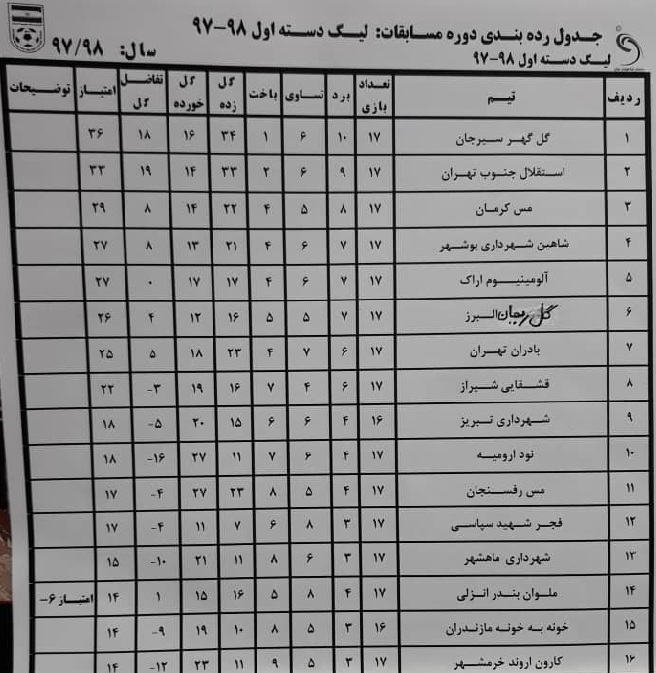 جدول رده بندی دوره مسابقات: لیگ دسته اول ۹۸-۹۷
لیگ دسته اول ۹۸-۹۷
سال: ۹۷/۹۸
ردیف تیم تعداد بازی برد تساوی باخت گل زده گل خورده تفاضل گل امتیاز توضیحات
۱ گل گهر سیرجان ۱۷ ۱۰ ۶ ۱ ۳۴ ۱۶ ۱۸ ۳۶
۲ استقلال جنوب تهران ۱۷ ۹ ۶ ۲ ۳۳ ۱۴ ۱۹ ۳۳
۳ مس کرمان ۱۷ ۸ ۵ ۴ ۲۲ ۱۴ ۸ ۲۹
۴ شاهین شهرداری بوشهر ۱۷ ۷ ۶ ۴ ۲۱ ۱۳ ۸ ۲۷
۵ آلومینیوم اراک ۱۷ ۷ ۶ ۴ ۱۷ ۱۷ ۰ ۲۷
۶ گل ریحان البرز ۱۷ ۷ ۵ ۵ ۱۶ ۱۲ ۴ ۲۶
۷ بادران تهران ۱۷ ۶ ۷ ۴ ۲۳ ۱۸ ۵ ۲۵
۸ قشقایی شیراز ۱۷ ۶ ۴ ۷ ۱۶ ۱۹ ۳- ۲۲
۹ شهرداری تبریز ۱۶ ۴ ۶ ۶ ۱۵ ۲۰ ۵- ۱۸
۱۰ نود ارومیه ۱۷ ۴ ۶ ۷ ۱۱ ۲۷ ۱۶- ۱۸
۱۱ مس رفسنجان ۱۷ ۴ ۵ ۸ ۲۳ ۲۷ ۴- ۱۷
۱۲ فجر شهید سپاسی ۱۷ ۳ ۸ ۶ ۷ ۱۱ ۴- ۱۷
۱۳ شهرداری ماهشهر ۱۷ ۳ ۶ ۸ ۱۱ ۲۱ ۱۰- ۱۵
۱۴ ملوان بندر انزلی ۱۷ ۴ ۸ ۵ ۱۶ ۱۵ ۱ ۱۴ امتیاز ۶-
۱۵ خونه به خونه مازندران ۱۶ ۳ ۵ ۸ ۱۰ ۱۹ ۹- ۱۴
۱۶ کارون اروند خرمشهر ۱۷ ۳ ۵ ۹ ۱۱ ۲۳ ۱۲- ۱۴